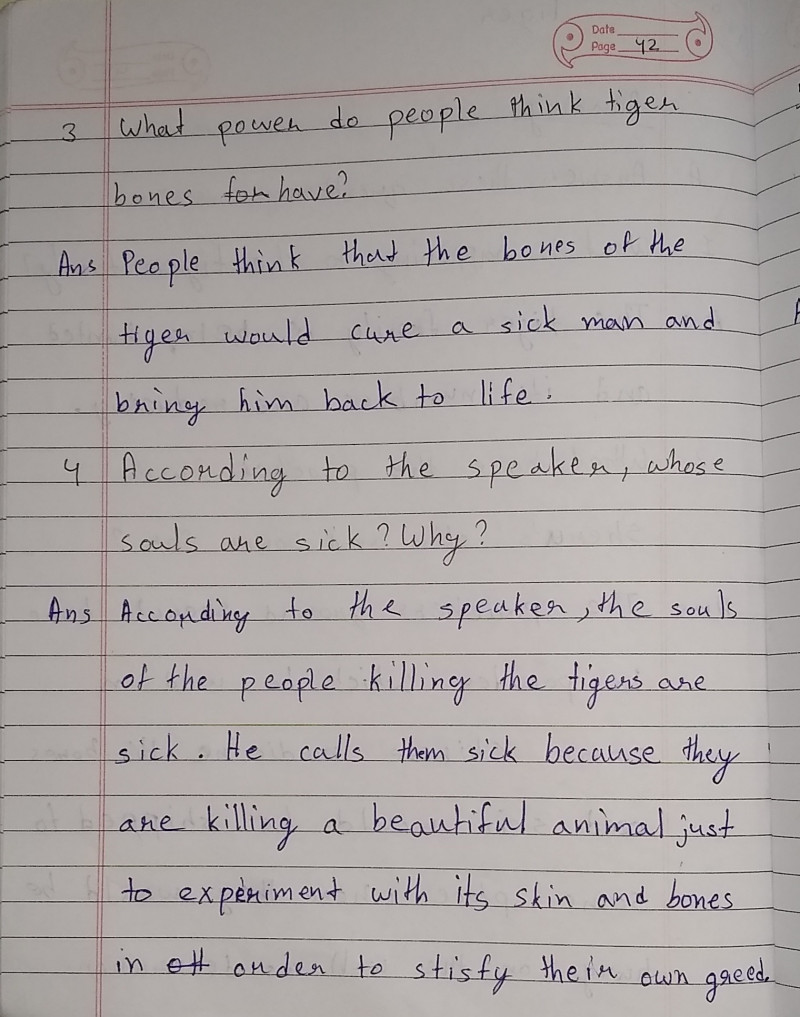 Date
Page 42
3 What power do people think tiger
bones for have?
Ans People think that the bones of the
tiger would cure a sick man and
bring him back to life.
4 According to the speaker, whose
souls are sick? Why?
Ans According to the speaker, the souls
of the people killing the tigers are
sick. He calls them sick because they
are killing a beautiful animal just
to experiment with its skin and bones
in order to stisfy their own greed.